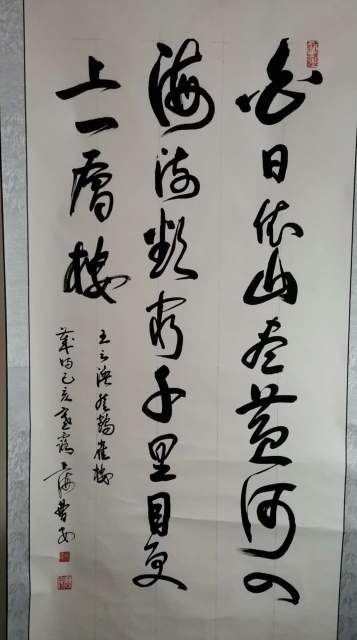 白日依山尽黄河入
海流欲窮千里目更
上一層樓
王之渙登鸛雀樓
歲時己亥寒露上海